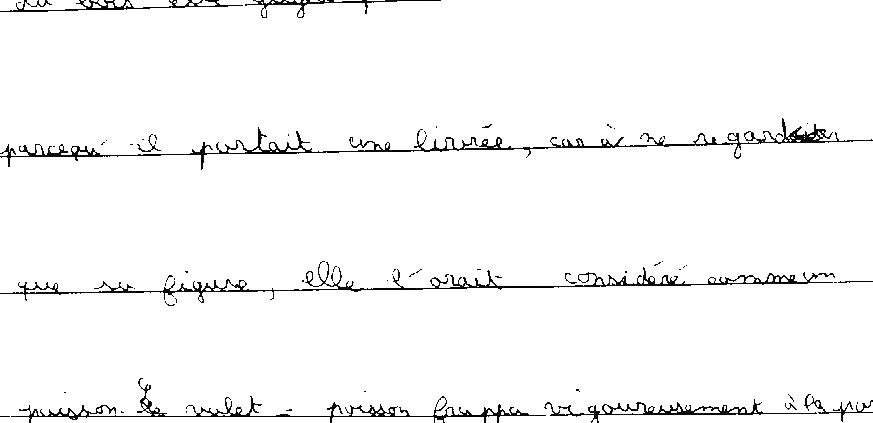 parcequ'il portait une livrée, car à ne regarder
que sa figure, elle l'avait considéré comme un
poisson. Le valet-poisson frappa vigoureusement à la